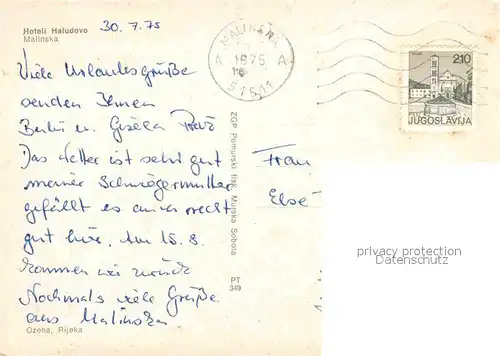 Hoteli Haludovo
Malinska
30.7.75
Viele Urlaubsgrüße
senden Ihnen
Gisela
Das Wetter ist sehr gut
meiner Schwiegermutter
gefällt es auch recht
gut hier. Am 15.8.
kommen wir zurück
Nochmals viele Grüße
aus Malinska
Ozeha, Rijeka
ZGP Pomurski tisk, Murska Sobota
PT
349
MALINSKA
A 1975 A
51511
2.10
PTT
JUGOSLAVIJA
Frau
Else
privacy protection
Datenschutz